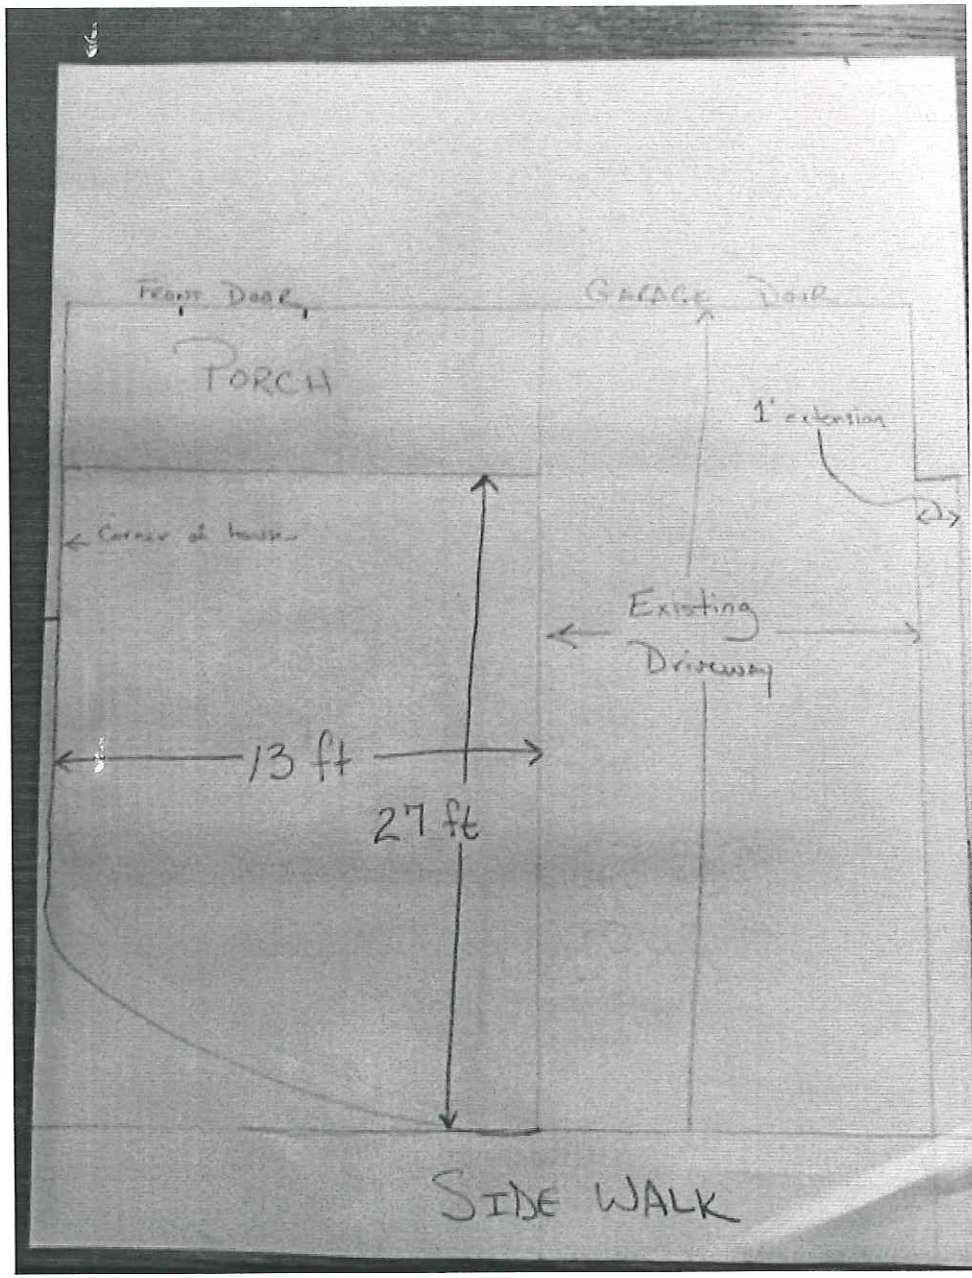 FRONT DOOR
GARAGE DOOR
PORCH
1' extension
← Corner of house
Existing
Driveway
13 ft
27 ft
SIDE WALK